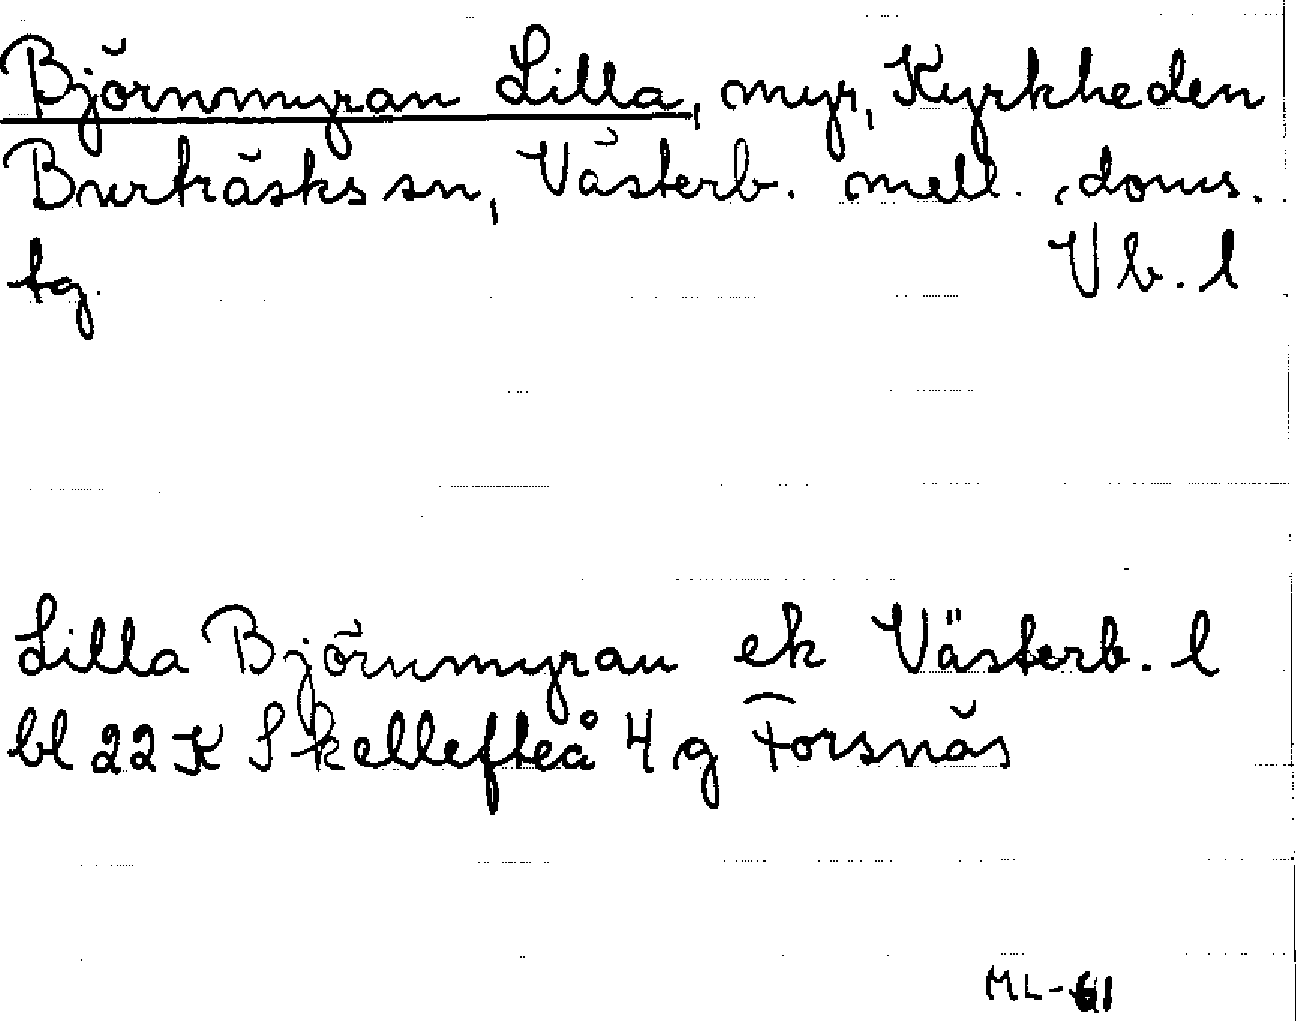 Björnmyran Lilla, myr, Kyrkheden
Burträsks sn, Västerb. mell. doms.
tg. Vb. l
Lilla Björnmyran ek Västerb. l
bl 22 K Skellefteå 4 g Forsnäs
ML-61